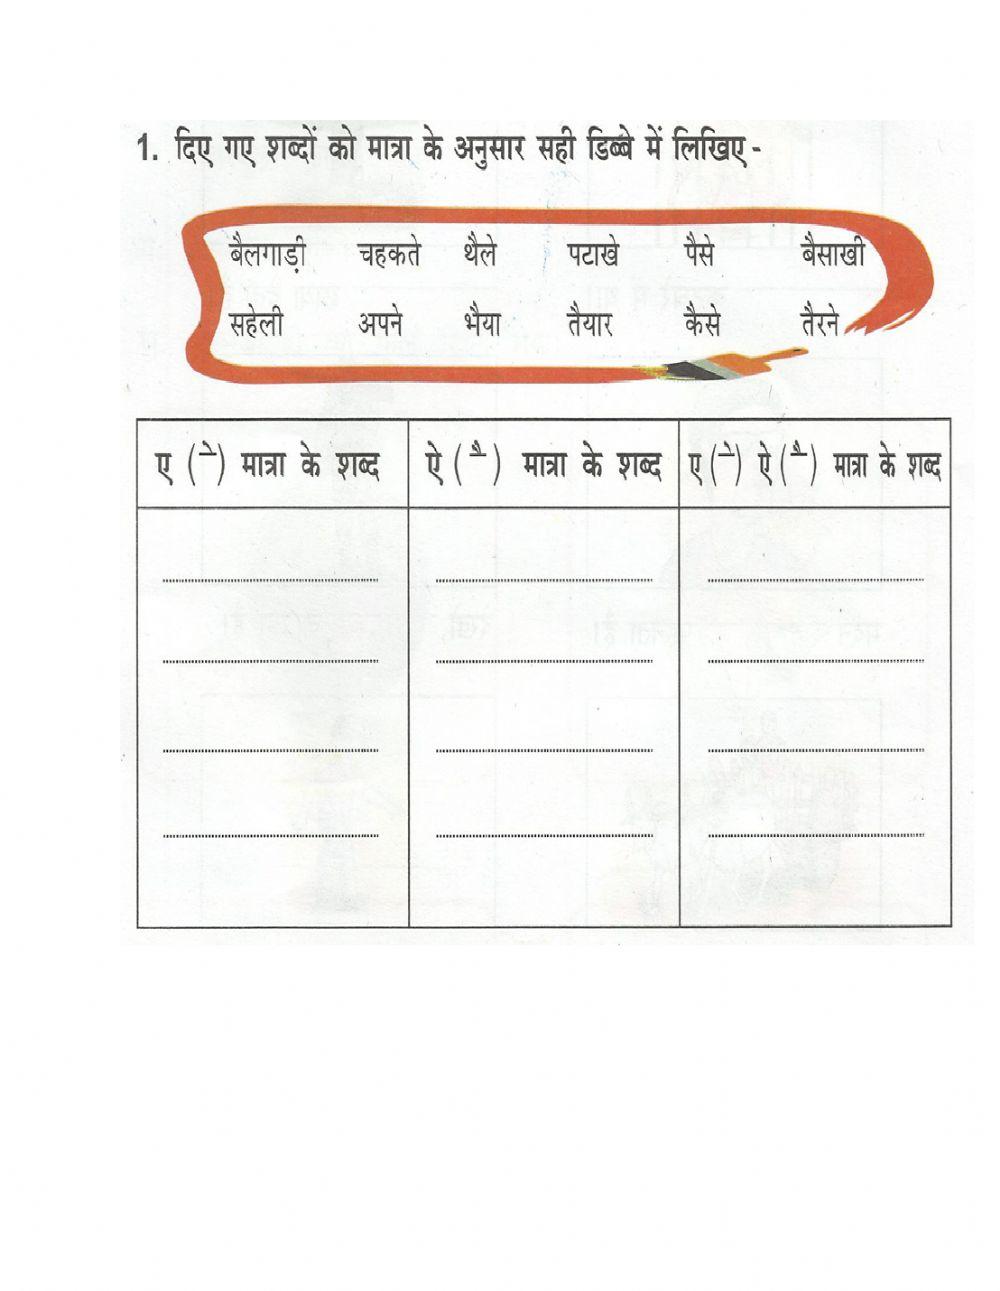 1. दिए गए शब्दों को मात्रा के अनुसार सही डिब्बे में लिखिए -
बैलगाड़ी चहकते थैले पटाखे पैसे बैसाखी
सहेली अपने भैया तैयार कैसे तैरने
ए ( े ) मात्रा के शब्द
ऐ ( ै ) मात्रा के शब्द
ए ( े ) ऐ ( ै ) मात्रा के शब्द